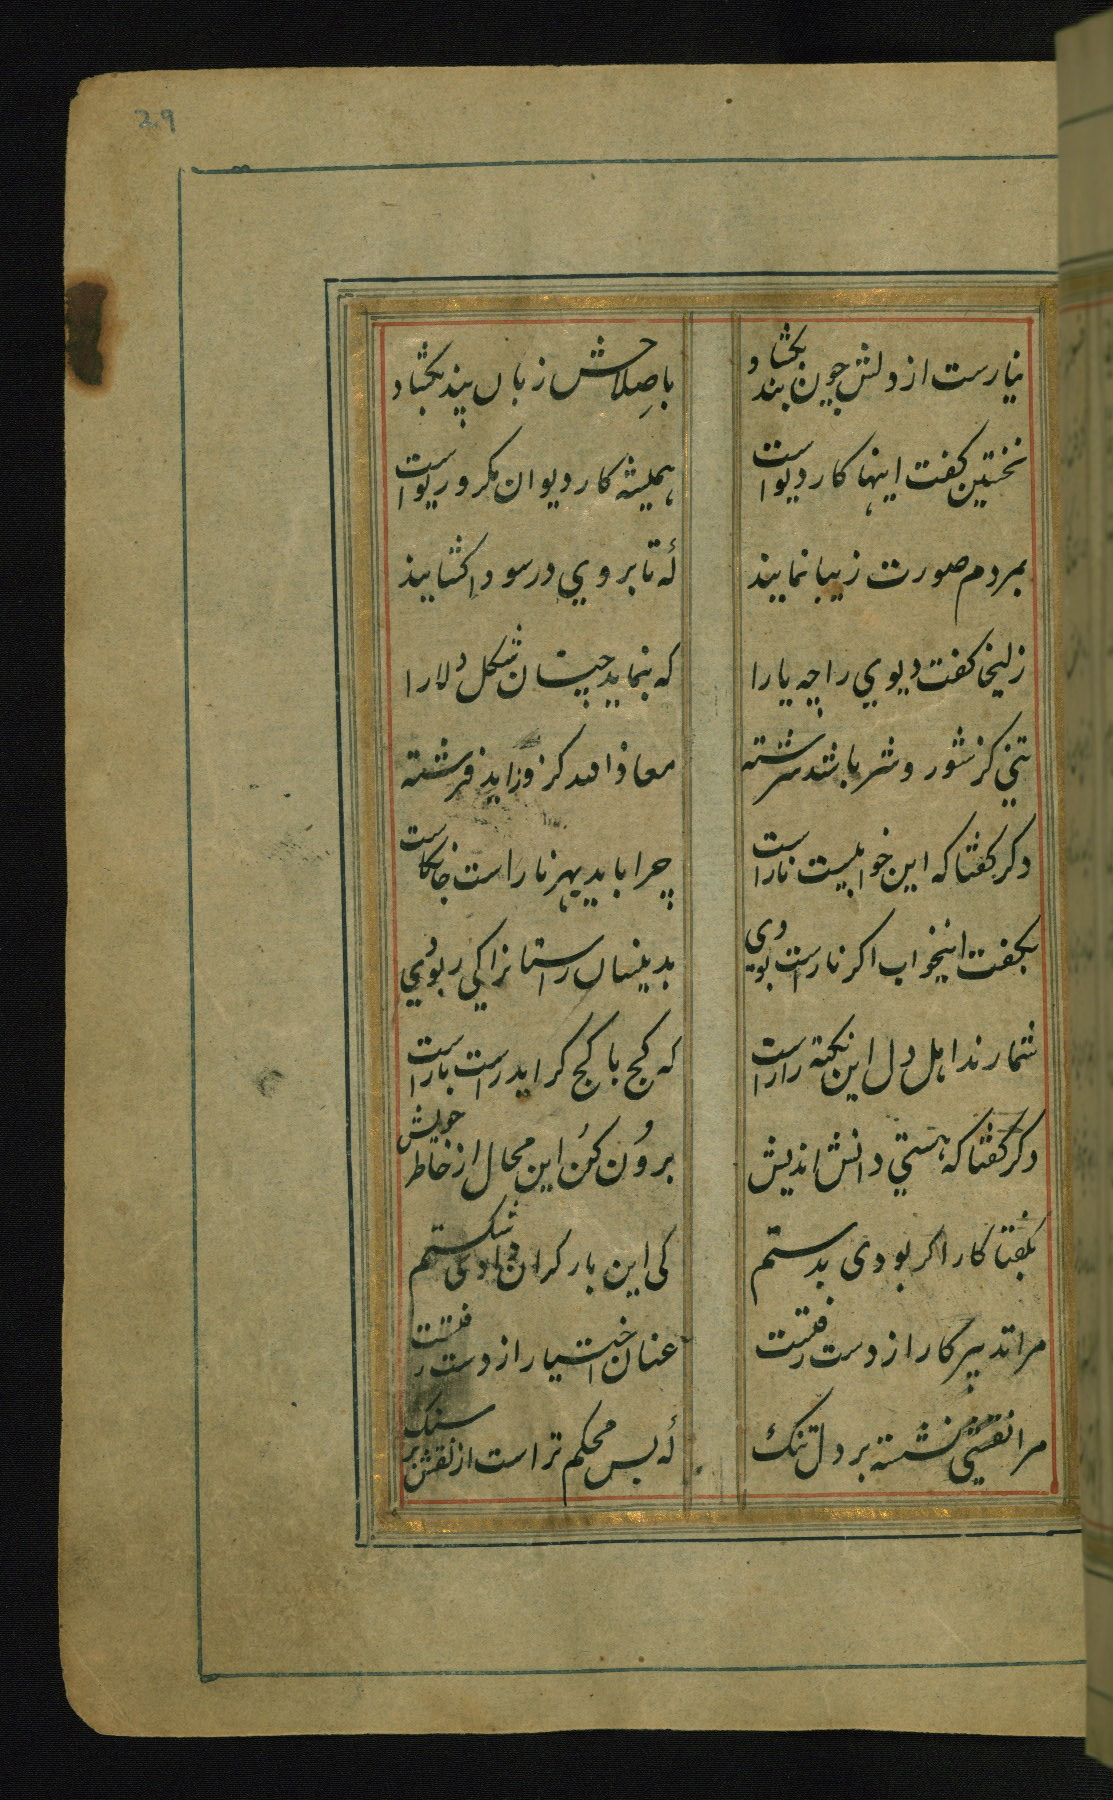 29
نیارست از دلش چون بند بکشاد باصلاحش زبان پند بکشاد
نختین کفت اینها کار دیواست همیشه کار دیوان مکر و ریواست
بمردم صورت زیبا نمایند که تا بر وی در سودا کشایند
زلیخا کفت دیوی را چه یارا که بنماید چنان شکل دلارا
تنی کز شور و شر باشد سرشته معاذ الله کز و زاید فرشته
دکر کفتا که این خوابیست ناراست چرا باید بهر ناراست
بکفت اینخواب اکر ناراست بودی بدینسان راستانرا کی ربودی
شمارند اهل دل این نکته را راست که کج با کج کراید راست با راست
دکر کفتا که هستی دانش اندیش برون کن این محال از خاطر خویش
بکفتا کار اکر بودی بدستم کی این بار کران دادی شکستم
مرا تدبیر کار از دست رفتست عنان اختیار از دست رفتست
مرا نقشی نشسته بر دل تنک که بس محکم تر است از نقش بر سنک